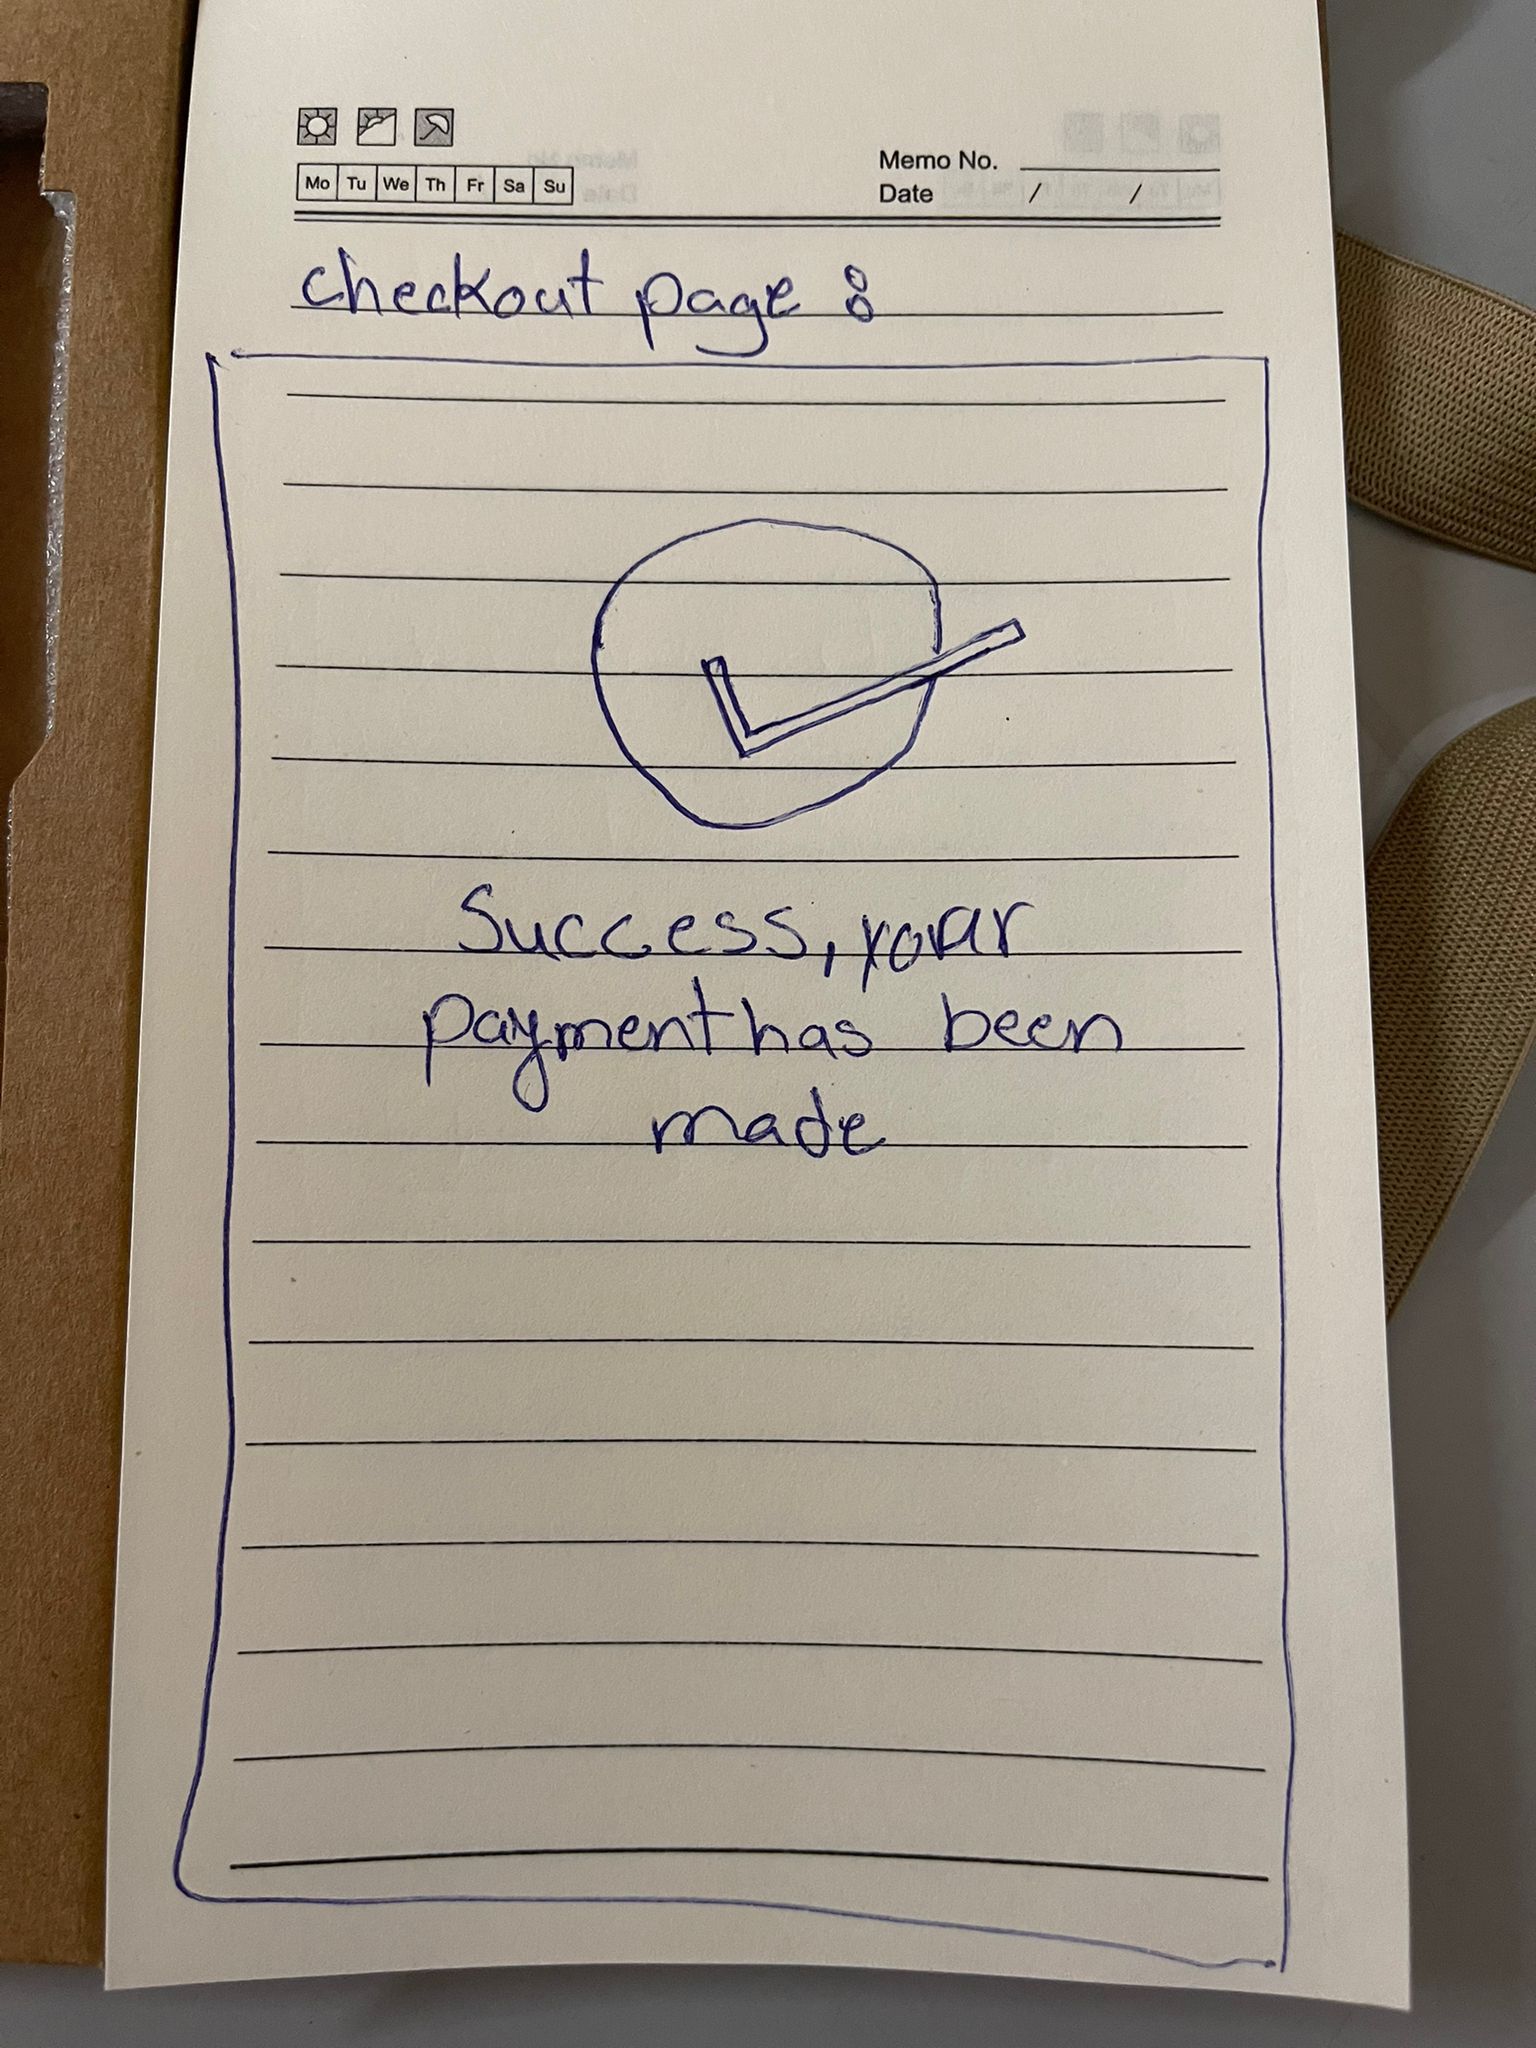 Mo Tu We Th Fr Sa Su
Memo No.
Date / /
checkout page :
Success, your
payment has been
made